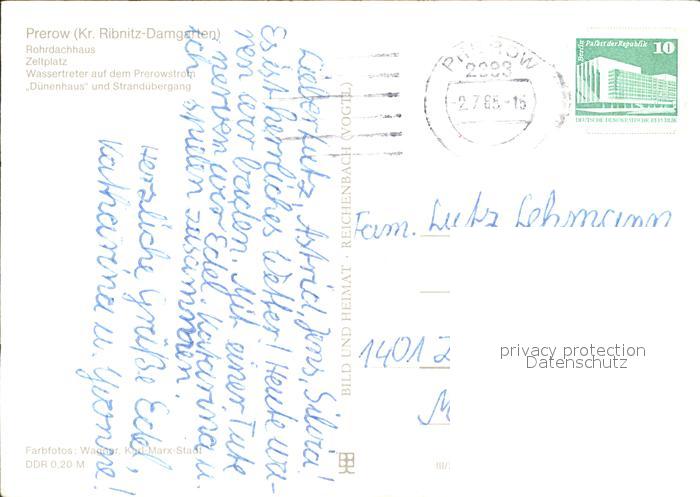 Prerow (Kr. Ribnitz-Damgarten)
Rohrdachhaus
Zeltplatz
Wassertreter auf dem Prerowstrom
„Dünenhaus" und Strandübergang
Lieber Lutz, Astrid, Jens, Silvia!
Es ist herrliches Wetter! Heute wa-
ren wir baden. Mit einer Tute
nerven wir Edel. Katarina u.
ich spielen zusammen.
Herzliche Grüße Edel,
Katharina u. Yvonne!
Farbfotos: Wagner, Karl-Marx-Stadt
DDR 0,20 M
BILD UND HEIMAT · REICHENBACH (VOGTL)
PREROW
2383
-2.7.86.-15
Berlin Palast der Republik 10
DEUTSCHE DEMOKRATISCHE REPUBLIK
Fam. Lutz Lehmann
1401 Z
M
privacy protection
Datenschutz
III/